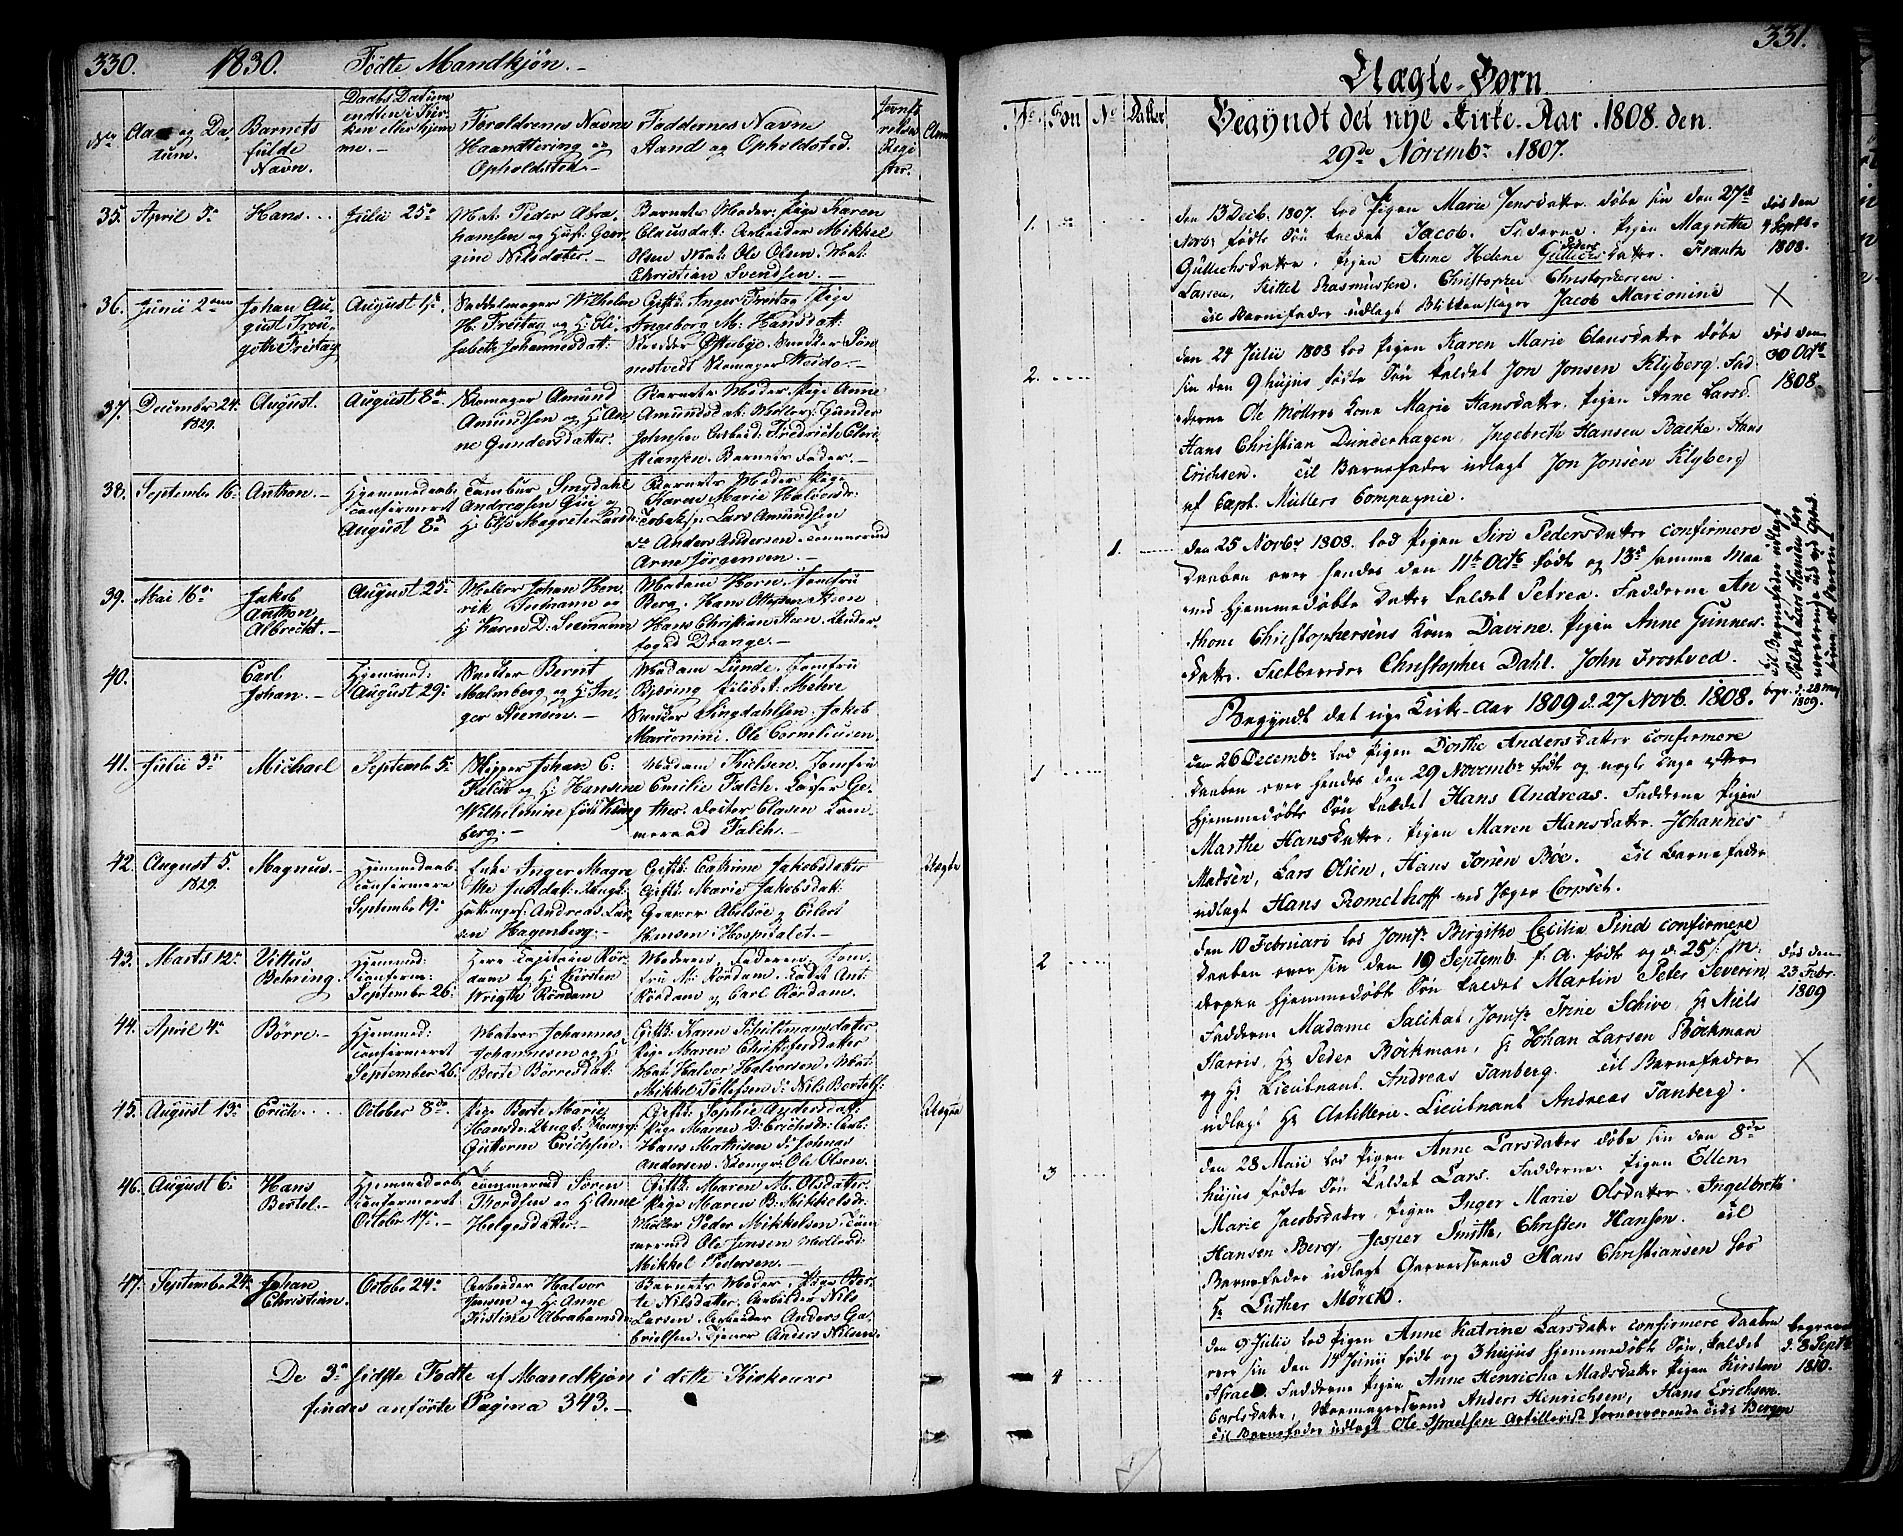 330. 1830. Födte Mandkjön.
No
Aar og Da-
tum.
Barnets
fulde
Navn.
Daabs Datum
enten i Kir-
ken eller hjem-
me.
Foraldrenes Navne
Haandtering og
Opholdssted.
Faddernes Navne
Stand og Opholdsted.
35. April 5te Hans Julii 25de
Mat: Peder Abra-
hamsen og Hust: Geor-
gine Nilsdatter.
Barnets Moder: Pige Karen
Clausdatt: Arbeider Mikkel
Olsen Mat: Ole Olsen. Mat:
Christian Svendsen.
36. Junii 2den
Johan Au-
gust Trou-
goth Freitag
August 1ste
Saddelmager Wilhelm
H: Freitag og H: Eli-
sabeth Johannesdat:
Gift: Inger Freitag Pige
Ingeborg M: Hansdat:
Snedker Ottesbye Snedker Søn-
nestvedt Skomager Weddo.
37. December 24. 1829. August. August 8de
Skomager Amund
Amundsen og H: An-
ne Gundersdatter.
Barnets Moder Pige Anne
Amundsdat: Møllers: Gunder
Johnsen Arbeid: Fredrich Chri-
stiansen. Barnets Fader.
38. September 16. Anthon.
Hjemmedaab
Confirmeret
August 8de
Tambur Singdahl
Andreassen Gui og
H: Else Magrete Larsd:
Barnets Moder Pige
Karen Marie Halvorsdr:
Tobaksp: Lars Amundsen
do Anders Andersen. Tømmermd
Arne Jörgensen.
39. Mai 16de
Jakob
Anthon
Albrecht.
August 25de
Møller Johan Hen-
rik Seemann og
H: Karen D: Seemann
Madam Horn. Jomfru
Berg. Hans Ottesen Steen
Hans Christian Steen. Under-
foged Drange.
40. Carl
Johan.
Hjemmed:
August 29de
Snedker Bernt
Malmberg og H: In-
ger Steensen.
Madam Lunde. Jomfru
Bjering Elisbet: Mehre
Snedker Singdahlsen. Jakob
Marconini. Ole Corneliusen
41. Julii 3de Michael September 5te
Skipper Johan C:
Falch og H: Hansine
Wilhelmine född Kong-
berg.
Madam Nielsen. Jomfru
Emilie Falch. Losser Ge-
ther. Foster Clasen Kam-
merraad Falch.
42. August 5. 1829. Magnus.
Hjemmedaab
Confirmeret
September 19de
Enke Inger Magre-
the
Andreas Lar-
sen Hagenberg.
Gift: Catrine Jakobsdatter
Gift: Marie Jakobsdat:
Garver Abelsöe og Eilert
Hansen i Hospitalet.
Uægte
43. Marts 12te
Vittus
Behring.
Hjemmed:
Confirme:
September 26.
Herr Capitain Rör-
dam og H: Kirsten
Wrigth Rördam
Moderen, Faderen, Jom-
fru M: Rördam. Kadet Ant.
Rördam og Carl Rördam.
44. April 4de Börre.
Hjemmed:
Confirmeret
September 26.
Matros Johannes
Johannesen og H:
Berte Börresdat:
Gift: Karen Schiltmansdatter
Pige Maren Christofersdatter
Mat: Halvor Halvorsen. Mat:
Mikkel Tollefsen do: Nils Bertels:
45. August 13de Erich October 8de
Pige Berte Marie
Hansdr: Ungd: Skomgr:
Guttorm Erichsen.
Gift: Sophie Andersdat:
Pige Maren D: Erichsdr: Arb:
Hans Mathisen do: Johnas
Andersen. Skomgr: Ole Olsen.
Uægte
46. August 6te
Hans
Bertel.
Hjemmedaab
Confirmeret
October 17de
Tømmermd Sören
Thordsen og H: Anne
Helgesdatter.
Gift: Maren M: Olsdatter
Pige Maren B: Mikkelsdr:
Møller Peder Mikkelsen. Tøm-
mermd Ole Jensen Møllerd:
Mikkel Pedersen.
47. September 24.
Johan
Christian.
October 24de
Arbeider Halvor
Jensen og H: Anne
Kristine Abrahamsdr
Barnets Moder, Pige Ber-
te Nilsdatter. Arbeider Nils
Larsen. Arbeider Anders Ga-
brielsen. Tjener Anders Nilsen.
De 3de sidste Födte af Mandkjön i dette Kirkeaar
findes anförte Pagina 343.
331.
Uægte-Börn
No. Son No. Datter
Begyndt det nye Kirke-Aar 1808 den
29de Novembr 1807.
1.
den 13 Decb. 1807. lod Pigen Marie Jensdatter döbe sin den 27de
Novbr födte Sön kaldet Jacob. Fadderne. Pigen Magrethe
Gullichsdatter, Pigen Anne Helene Pedersdatter. Frantz
Larsen, Kittel Rasmussen. Christopher Christophersen.
til Barnefader udlagt Blikkenslager Jacob Marconini
död den
4 Septbr
1808.
2.
den 24 Julii 1808 lod Pigen Karen Marie Clausdatter döbe
sin den 9 hujus födte Sön kaldet Jon Jonsen Klyberg. Fad-
derne Ole Möllers Kone Marie Hansdatter. Pigen Anne Larsd.
Hans Christian Dunderhagen, Ingebreth Hansen Bakke. Hans
Erichsen. til Barnefader udlagt Jon Jonsen Klyberg
af Capt. Müllers Compagnie.
död den
30 Octbr
1808.
1.
den 25 Novbr 1808. lod Pigen Siri Pedersdatter confirmere
Daaben over hendes den 11te Octb födt og 13de samme Maa-
ned hjemmedöbte Datter kaldet Petrea. Fadderne An-
thone Christophersens Kone Davine. Pigen Anne Gunners-
datter. Feltbereder Christopher Dahl. John Frostved.
Til Barnefader udlagt
Soldat Lars Hansen för
nærværende ud ved Grænd-
begr. d. 28 Maj
1809.
Begyndt det nye Kirke-Aar 1809 d. 27 Novb. 1808.
1
den 26 Decembr lod Pigen Dorthe Andersdatter confirmere
Daaben over hendes den 29 Novembr födt og nogle Dage efter
hjemmedöbte Sön kaldet Hans Andreas. Fadderne Pigen
Marthe Hansdatter, Pigen Maren Hansdatter. Johannes
Madsen, Lars Olsen, Hans Jonsen Böe. til Barnefader
udlagt Hans Romelhoff ved Jæger Corpset.
2
den 10 Februari lod Jomfr Birgithe Cecilia Pind confirmere
Daaben over sin den 19 Septemb. f. A. födte og d. 25 s. M.
derpaa hjemmedöbte Sön kaldet Martin Peter Severin
Fadderne Madame Salikat, Jomfr Trine Schive, Hr Niels
Harris, Hr Peder Böckman, Hr Johan Larsen Böckman
og Hr Lieutnant Andreas Tanberg. til Barnefader
udlagt Hr Artillerie-Lieutnant Andreas Tanberg.
död den
23 Febr.
1809
3
den 28 Maii lod Pigen Anne Larsdatter döbe sin den 8de
hujus födte Sön kaldet Lars. Fadderne. Pigen Ellen
Marie Jacobsdatter, Pigen Inger Marie Olsdatter. Ingelbreth
Hansen Berg, Jesper Smitth, Christen Hansen. til
Barnefader udlagt Garversvend Hans Christiansen hos
Hr Luther Mörch.
4
den 9 Julii lod Pigen Anne Katrine Larsdatter confirmere Daaben
over sin den 14 Junii födt og 3 hujus hjemmedöbte Sön, kaldet
Israel. Fadderne Pigen Anne Henricha Madsdatter Pigen Kirsten
Carlsdatter, Skomagersvend Anders Henrichsen, Hans Erichsen.
til Barnefader udlagt Ole Israelsen Artillerist fornærværende til Bergen
begraven
d. 8 Septbr
1810.